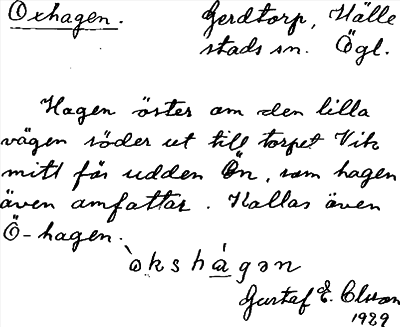 Oxhagen. Gerdtorp, Hälle
stads sn. Ögl.
Hagen öster om den lilla
vägen söder ut till torpet Vik
mitt för udden Ön, som hagen
även omfattar. Kallas även
Ö-hagen.
òkshágən
Gustaf E. Olsson
1929